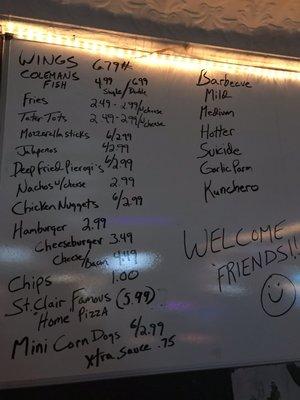 WINGS 6.79
COLEMANS FISH 4.99 Single / 6.99 Double
Fries 2.49 - 2.99 w/cheese
Tater Tots 2.49 - 2.99 w/cheese
Mozzarella sticks 6/2.99
Jalapenos 6/2.99
Deep Fried Pierogi's 6/2.99
Nachos w/cheese 2.99
Chicken Nuggets 6/2.99
Hamburger 2.99
Cheeseburger 3.49
Cheese/Bacon
Chips 1.00
St. Clair Famous (5.99)
"Home" Pizza
Mini Corn Dogs 6/2.99
Xtra Sauce .75
Barbecue
Mild
Medium
Hotter
Suicide
Garlic Parm
Kunchero
WELCOME
"FRIENDS!!